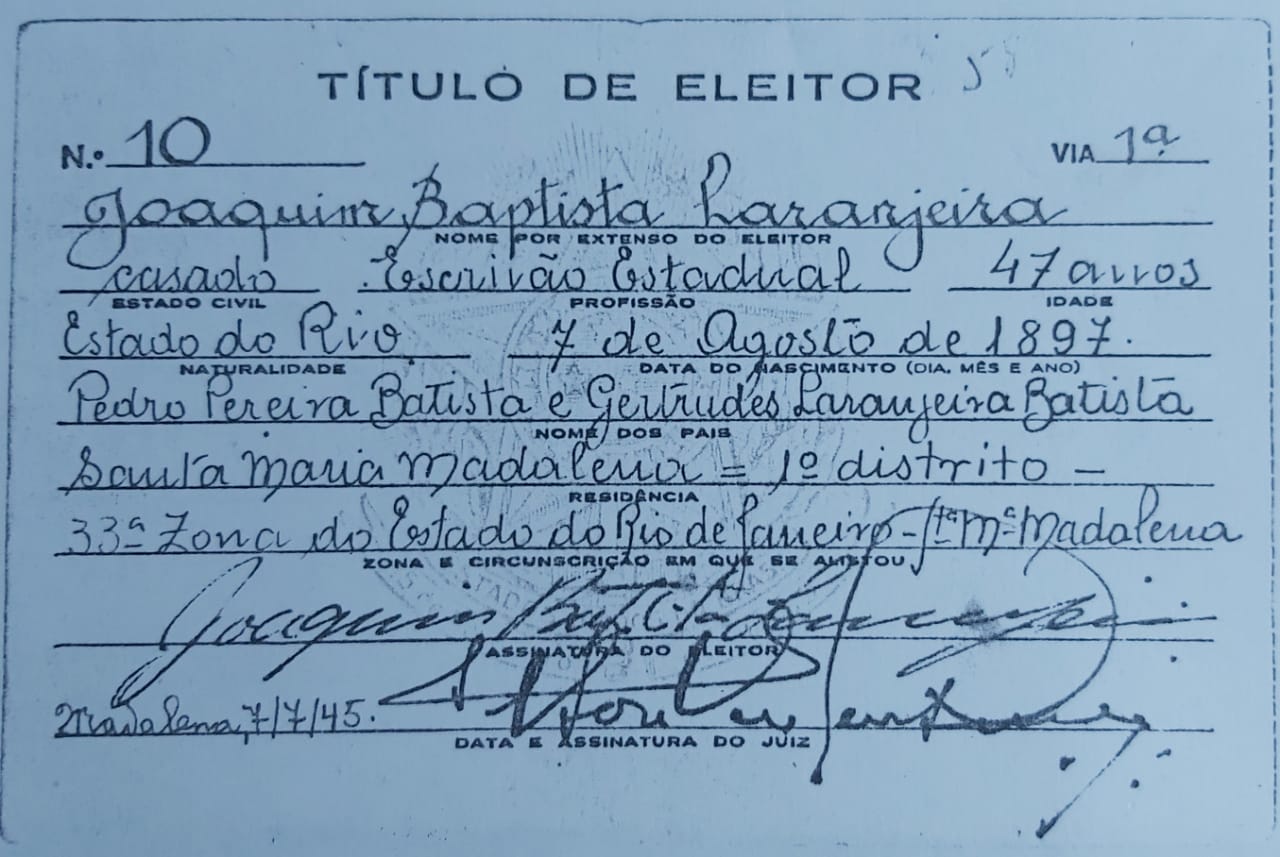 TÍTULO DE ELEITOR
N.º 10 VIA 1ª
Joaquim Baptista Laranjeira
NOME POR EXTENSO DO ELEITOR
casado Escrivão Estadual 47 annos
ESTADO CIVIL PROFISSÃO IDADE
Estado do Rio 7 de Agosto de 1897.
NATURALIDADE DATA DO NASCIMENTO (DIA, MÊS E ANO)
Pedro Pereira Batista e Gertrudes Laranjeira Batista
NOME DOS PAIS
Santa Maria Madalena = 1º distrito –
RESIDÊNCIA
33ª Zona do Estado do Rio de Janeiro - Stª Mª Madalena
ZONA E CIRCUNSCRIÇÃO EM QUE SE ALISTOU
Joaquim Baptista Laranjeira
ASSINATURA DO ELEITOR
Madalena, 7/7/45.
DATA E ASSINATURA DO JUIZ